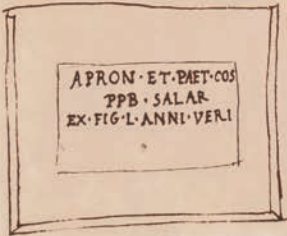 APRON·ET·PAET·COS
PPB·SALAR
EX·FIG·L·ANNI·VERI